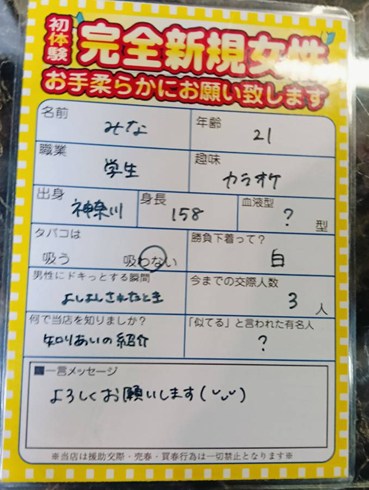 初体験
完全新規女性
お手柔らかにお願い致します
名前
みな
年齢
21
職業
学生
趣味
カラオケ
出身
神奈川
身長
158
血液型
? 型
タバコは
吸う 吸わない
勝負下着って?
白
男性にドキっとする瞬間
よしよしされたとき
今までの交際人数
3 人
何で当店を知りましたか?
知りあいの紹介
「似てる」と言われた有名人
?
■一言メッセージ
よろしくお願いします(◡‿◡)
※当店は援助交際・売春・買春行為は一切禁止となります※